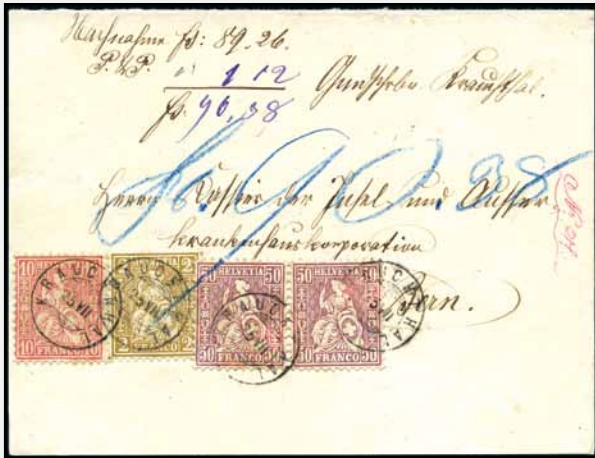 Nachnahme fr: 89.26.
P. & P. " 1 12
fr. 90,38
Gmdschrbr. Krauchthal.
fr. 90.38
Herrn Kassier der Insel und Ausser
krankenhauskorporation
Bern.
10 10
FRANCO
2 2
FRANCO
HELVETIA
50 50
FRANCO
HELVETIA
50 50
FRANCO
KRAUCHTHAL